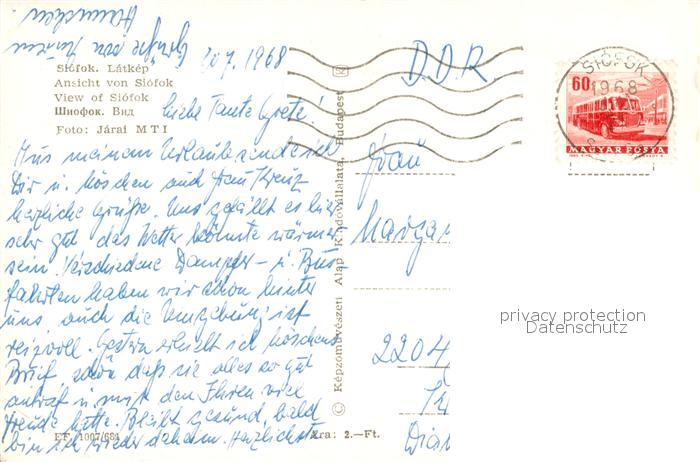 Grüße von
Hannchen
20.7.1968
Siófok. Látkép
Ansicht von Siófok
View of Siófok
Шиофок. Вид
Foto: Járai MTI
Liebe Tante Grete!
Aus meinem Urlaub sende ich
Dir u. Röschen auch Frau Kreuz
herzliche Grüße. Uns gefällt es hier
sehr gut das Wetter könnte wärmer
sein. Verschiedene Dampfer- u. Bus
fahrten haben wir schon hinter
uns, auch die Umgebung ist
reizvoll. Gestern erhielt ich Röschens
Brief, schön daß sie alles so gut
antraf u. mit den Ihren viel
Freude hatte. Bleibt gesund, bald
bin ich wieder daheim. Herzlichste
EF. 1007/684
Ára: 2.—Ft.
© Képzőművészeti Alap Kiadóvállalata, Budapest
D.D.R.
Frau
Margar
2204
Dia
SIÓFOK
1968
60f
MAGYAR POSTA
privacy protection
Datenschutz